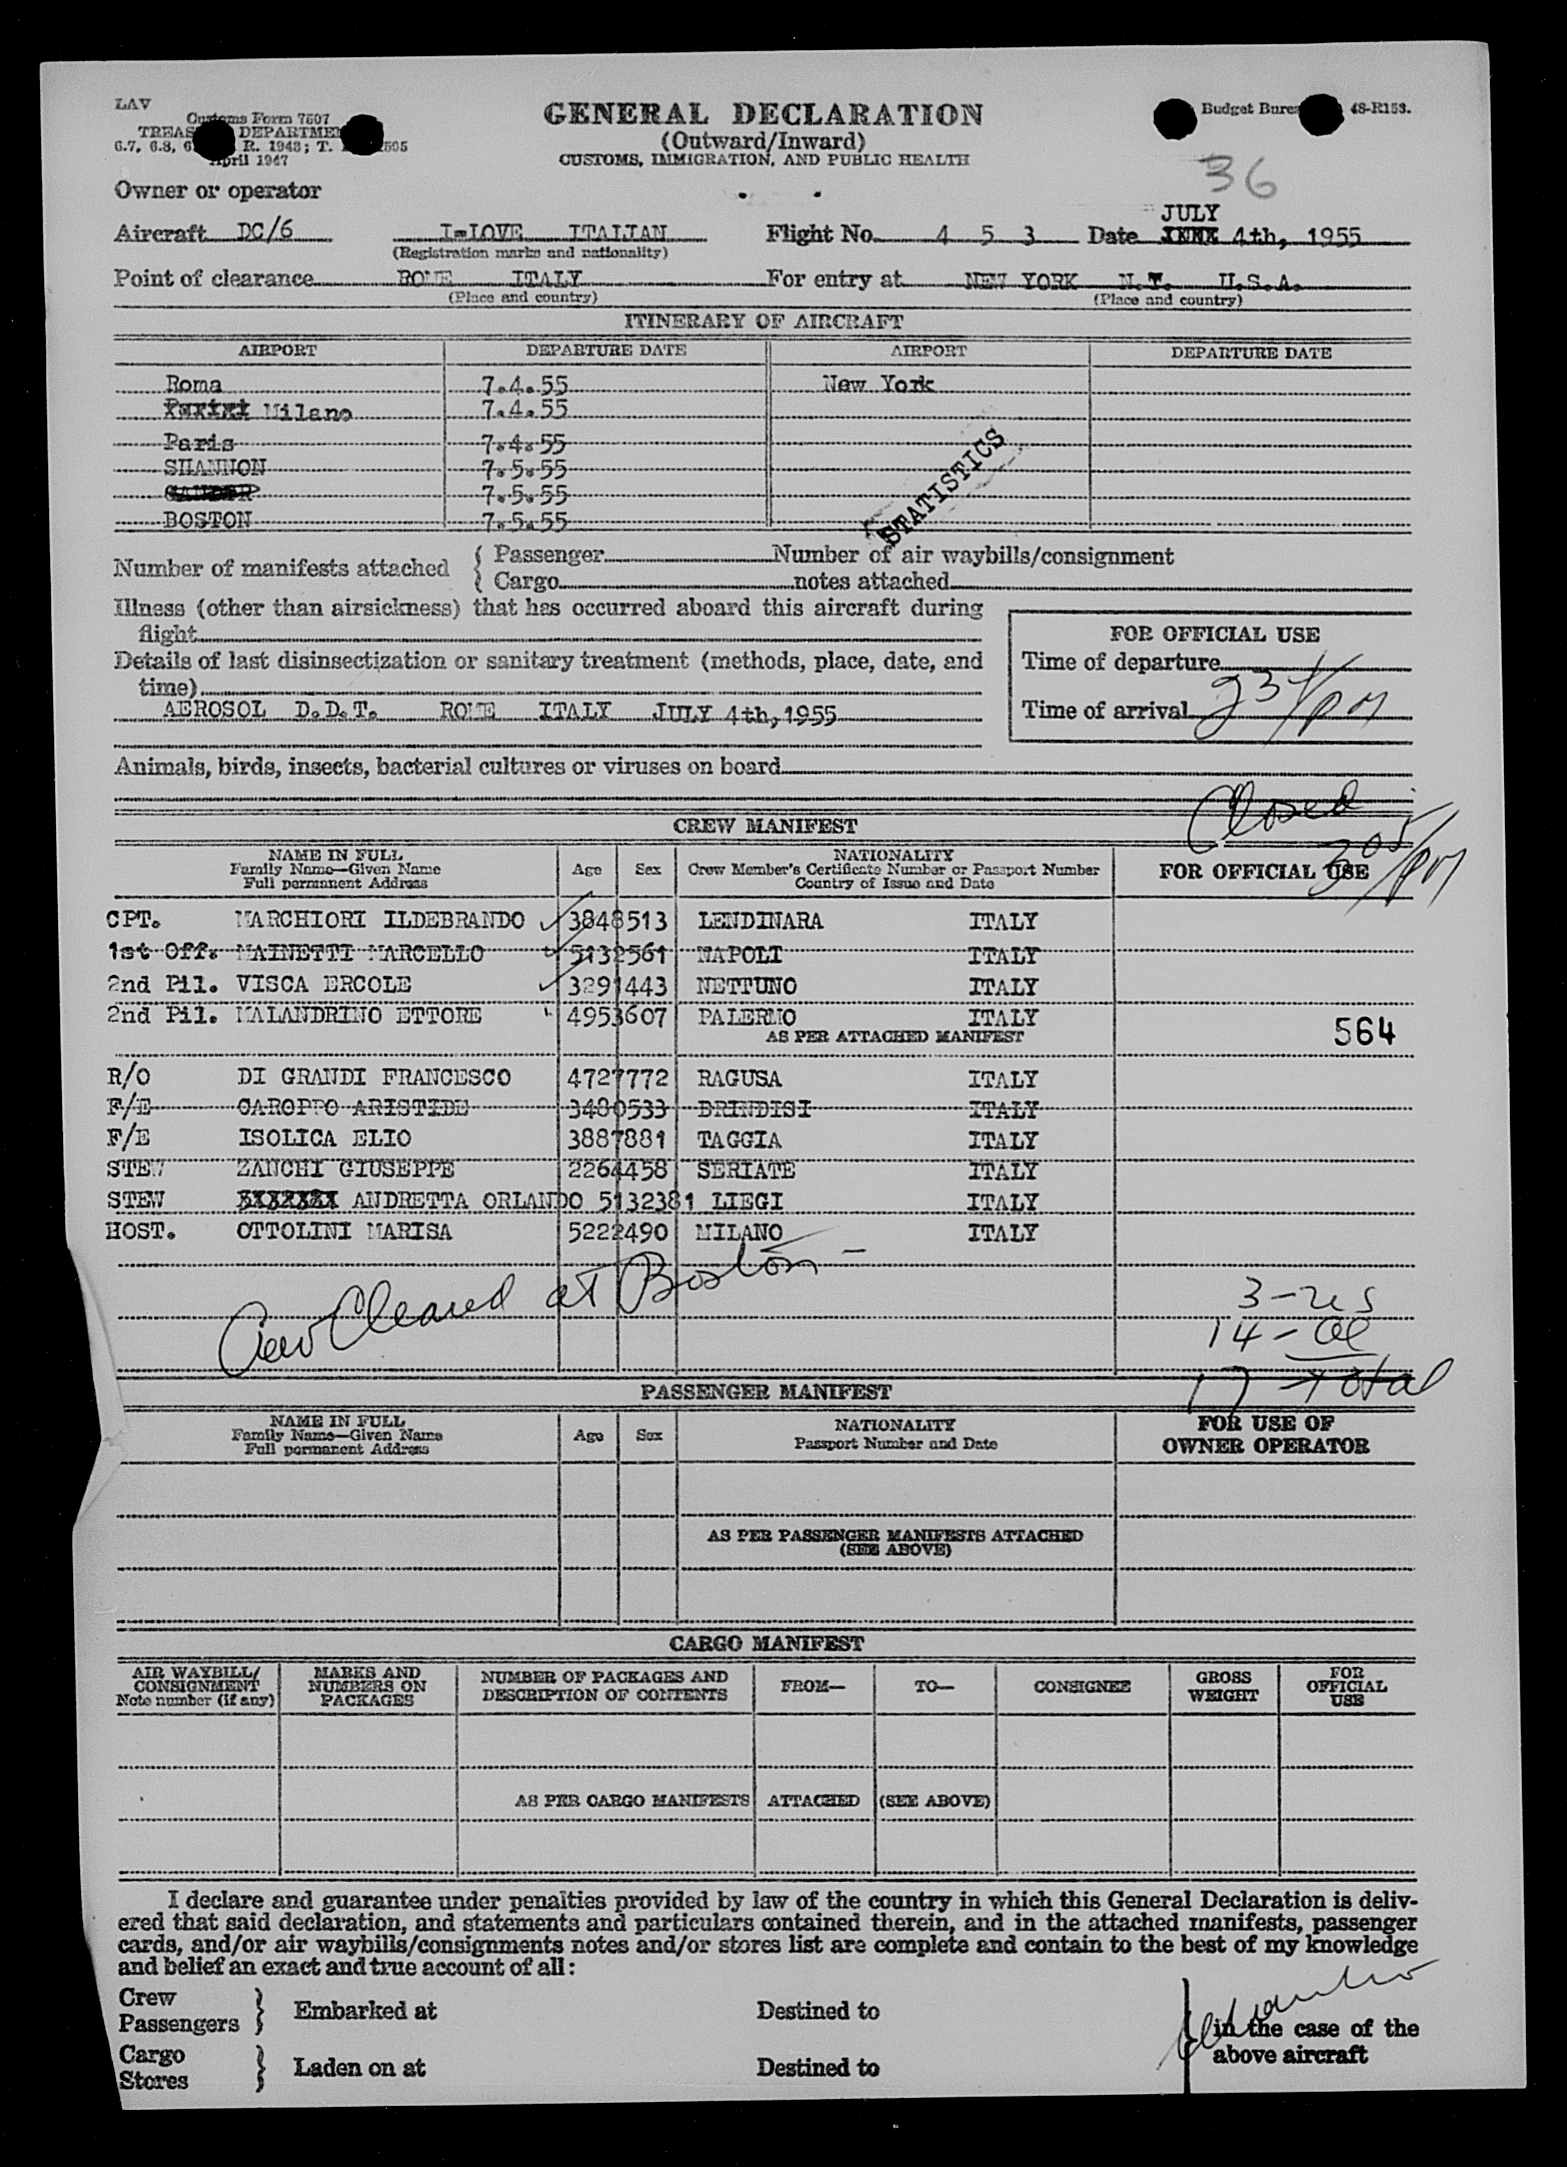 LAV
Customs Form 7507
TREAS DEPARTMEN
6.7, 6.8, 6 R. 1943; T. 595
April 1947
GENERAL DECLARATION
(Outward/Inward)
CUSTOMS, IMMIGRATION, AND PUBLIC HEALTH
Budget Bure 48-R153.
36
Owner or operator
JULY
Aircraft DC/6 I-LOVE ITALIAN Flight No. 4 5 3 Date 4th, 1955
(Registration marks and nationality)
Point of clearance ROME ITALY For entry at NEW YORK N.Y. U.S.A.
(Place and country) (Place and country)
ITINERARY OF AIRCRAFT
AIRPORT DEPARTURE DATE AIRPORT DEPARTURE DATE
Roma 7.4.55 New York
Milano 7.4.55
Paris 7.4.55
SHANNON 7.5.55
GANDER 7.5.55
BOSTON 7.5.55
STATISTICS
Number of manifests attached { Passenger Number of air waybills/consignment
{ Cargo notes attached
Illness (other than airsickness) that has occurred aboard this aircraft during
flight
Details of last disinsectization or sanitary treatment (methods, place, date, and
time)
AEROSOL D.D.T. ROME ITALY JULY 4th, 1955
FOR OFFICIAL USE
Time of departure
Time of arrival
Animals, birds, insects, bacterial cultures or viruses on board
Closed
305/pm
CREW MANIFEST
NAME IN FULL
Family Name—Given Name
Full permanent Address
Age
Sex
NATIONALITY
Crew Member's Certificate Number or Passport Number
Country of Issue and Date
FOR OFFICIAL USE
CPT. MARCHIORI ILDEBRANDO 3848513 LENDINARA ITALY
1st Off. MAINETTI MARCELLO 5132561 NAPOLI ITALY
2nd Pil. VISCA ERCOLE 3291443 NETTUNO ITALY
2nd Pil. MALANDRINO ETTORE 4953607 PALERMO ITALY
AS PER ATTACHED MANIFEST 564
R/O DI GRANDI FRANCESCO 4727772 RAGUSA ITALY
F/E CAROPPO ARISTIDE 3480533 BRINDISI ITALY
F/E ISOLICA ELIO 3887881 TAGGIA ITALY
STEW ZANCHI GIUSEPPE 2264458 SERIATE ITALY
STEW ANDRETTA ORLANDO 5132381 LIEGI ITALY
HOST. OTTOLINI MARISA 5222490 MILANO ITALY
Crew Cleared at Boston -
3-US
14-al
17-Total
PASSENGER MANIFEST
NAME IN FULL
Family Name—Given Name
Full permanent Address
Age
Sex
NATIONALITY
Passport Number and Date
FOR USE OF
OWNER OPERATOR
AS PER PASSENGER MANIFESTS ATTACHED
(SEE ABOVE)
CARGO MANIFEST
AIR WAYBILL/
CONSIGNMENT
Note number (if any)
MARKS AND
NUMBERS ON
PACKAGES
NUMBER OF PACKAGES AND
DESCRIPTION OF CONTENTS
FROM—
TO—
CONSIGNEE
GROSS
WEIGHT
FOR
OFFICIAL
USE
AS PER CARGO MANIFESTS ATTACHED (SEE ABOVE)
I declare and guarantee under penalties provided by law of the country in which this General Declaration is deliv-
ered that said declaration, and statements and particulars contained therein, and in the attached manifests, passenger
cards, and/or air waybills/consignments notes and/or stores list are complete and contain to the best of my knowledge
and belief an exact and true account of all:
Crew
Passengers } Embarked at Destined to
in the case of the
above aircraft
Cargo
Stores } Laden on at Destined to